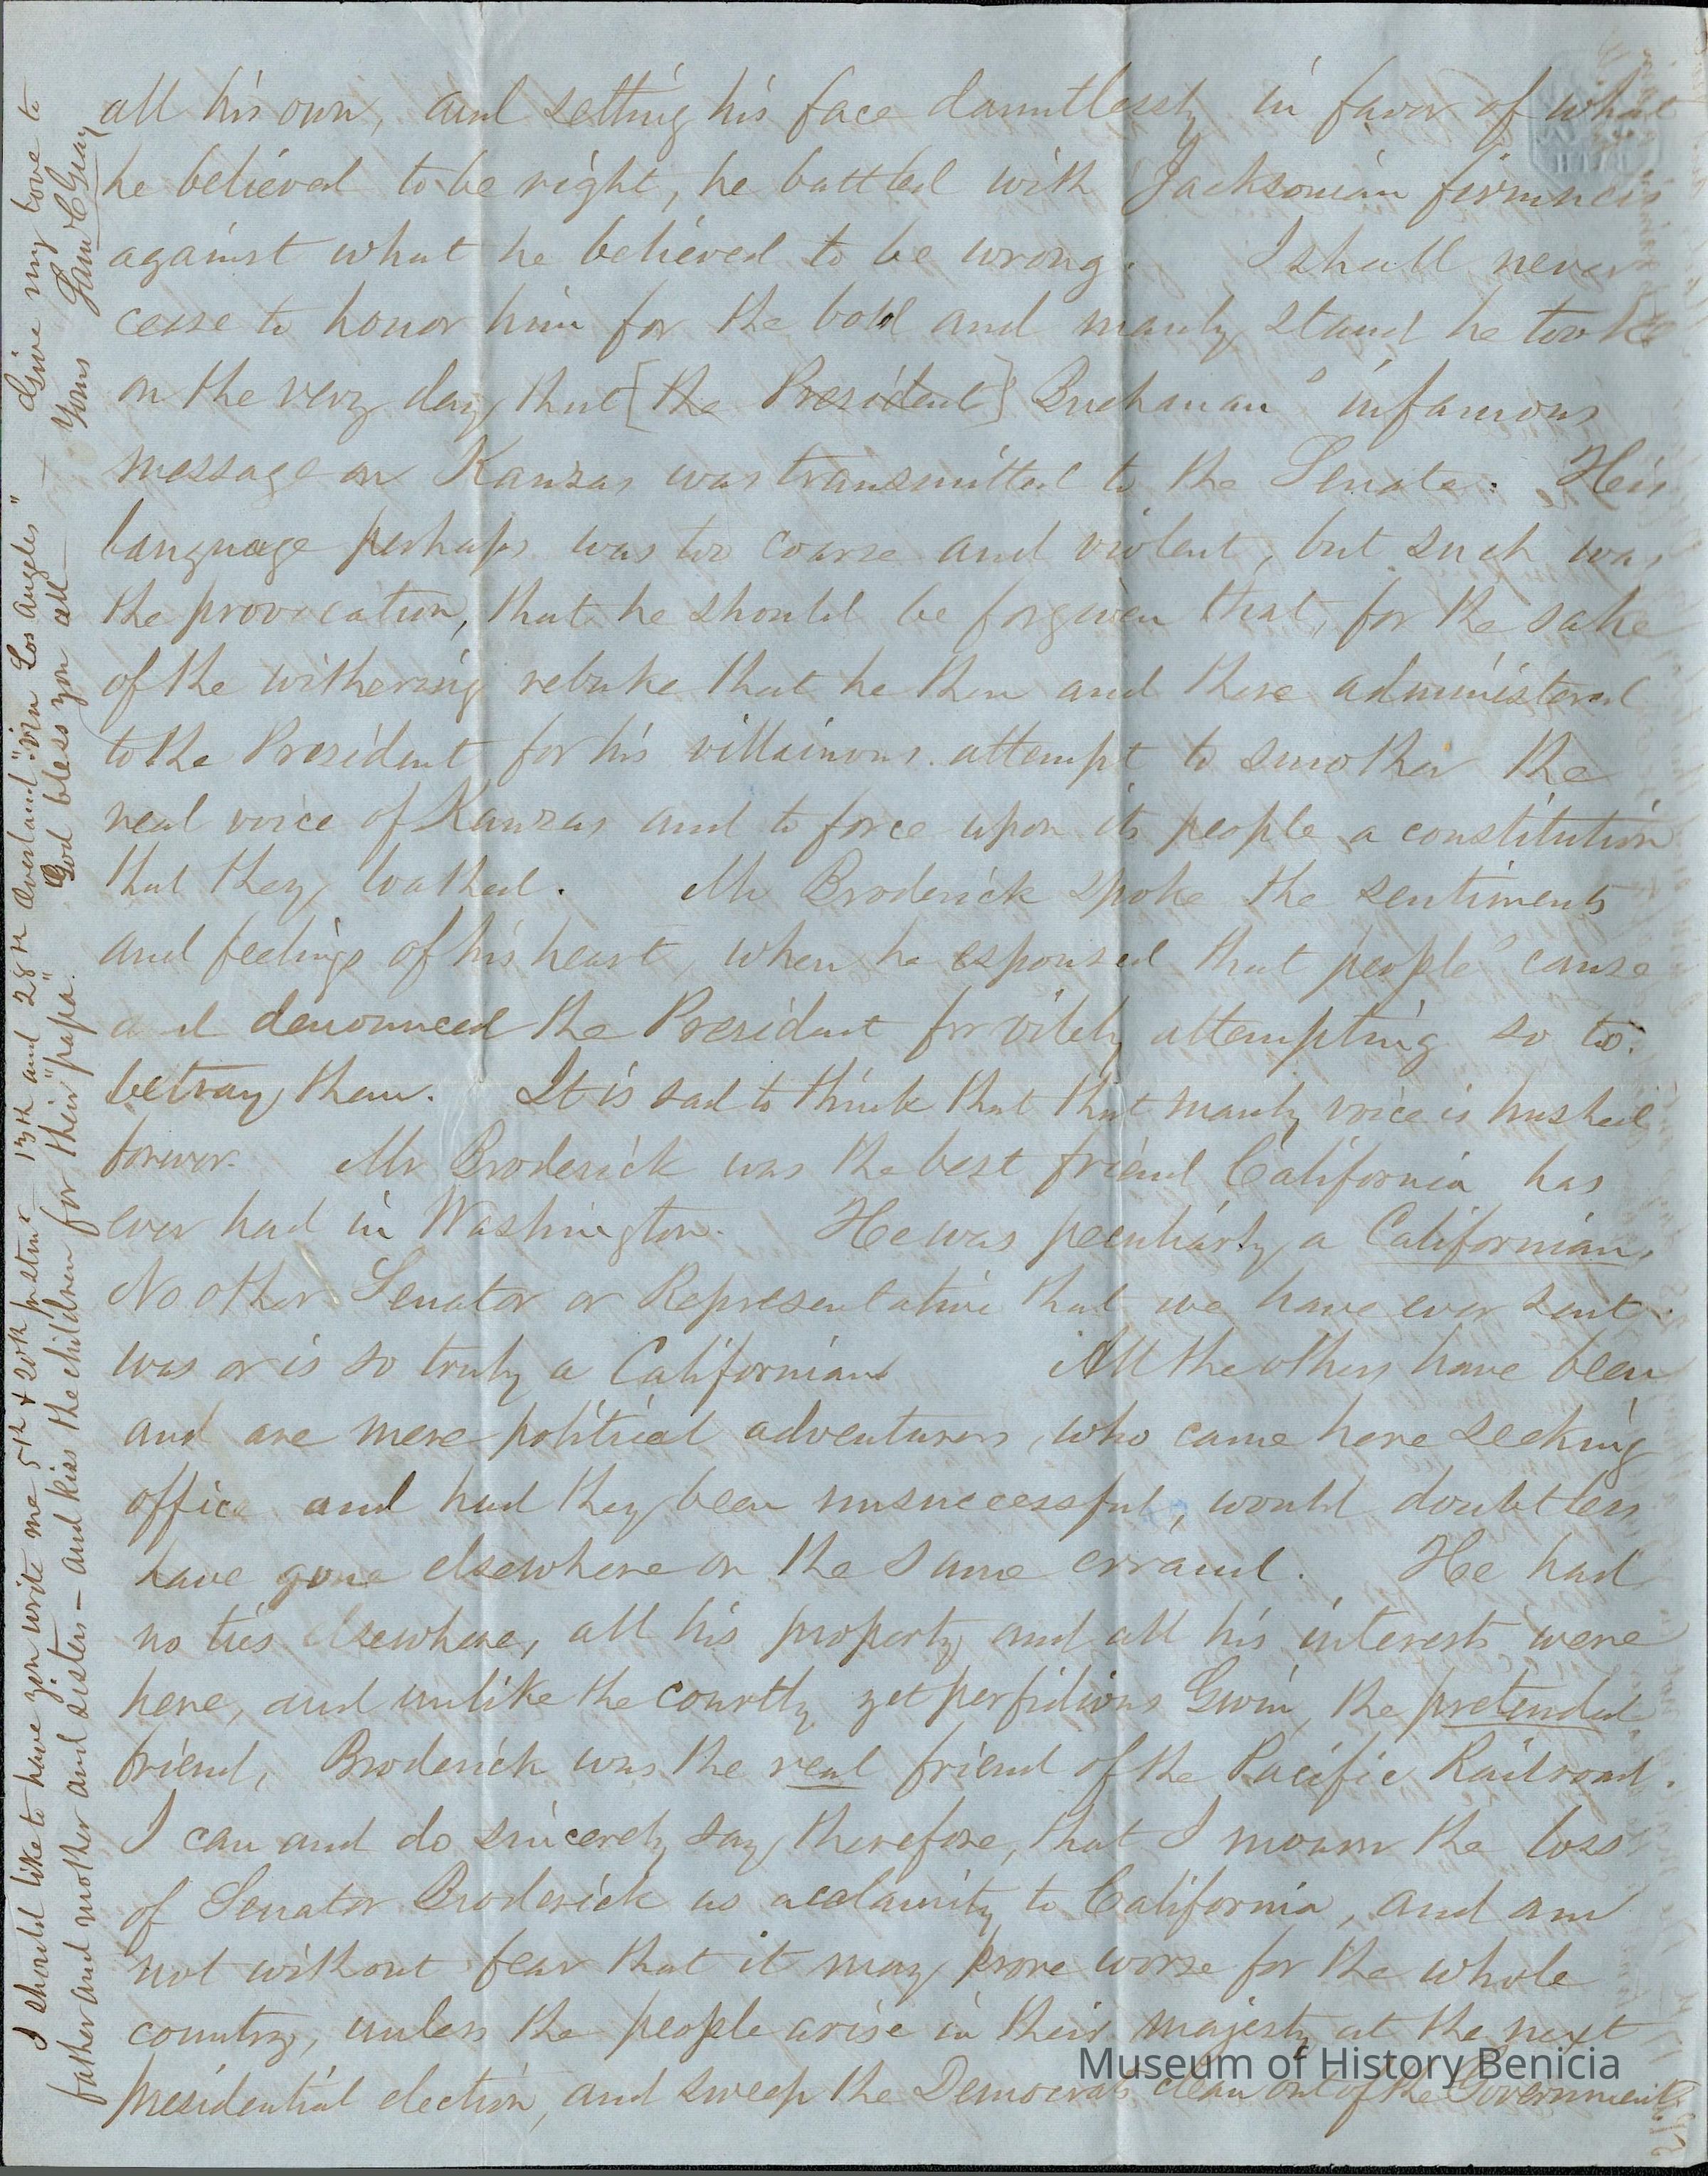 all his own, and setting his face dauntlessly in favor of what
he believed to be right, he battled with Jacksonian firmness
against what he believed to be wrong. I shall never
cease to honor him for the bold and manly stand he took
on the very day that [the President] Buchanan's infamous
message on Kanzas was transmitted to the Senate. His
language perhaps was too coarse and violent, but such was
the provocation, that he should be forgiven that, for the sake
of the withering rebuke that he then and there administered
to the President for his villainous attempt to smother the
real voice of Kanzas and to force upon its people a constitution
that they loathed. Mr Broderick spoke the sentiments
and feelings of his heart, when he espoused that people's cause
and denounced the President for vilely attempting so to
betray them. It is sad to think that that manly voice is hushed
forever. Mr Broderick was the best friend California has
ever had in Washington. He was peculiarly a Californian.
No other Senator or Representative that we have ever sent
was or is so truly a Californian. All the others have been
and are mere political adventurers, who came here seeking
office and had they been unsuccessful, would doubtless
have gone elsewhere on the same errand. He had
no ties elsewhere, all his property and all his interests were
here, and unlike the courtly yet perfidious Gwin, the pretended
friend, Broderick was the real friend of the Pacific Railroad.
I can and do sincerely say, therefore, that I mourn the loss
of Senator Broderick as a calamity to California, and am
not without fear that it may prove worse for the whole
country, unless the people arise in their majesty at the next
presidential election, and sweep the Democrats clean out of the Government
I should like to have you write me 5th & 20th pr steamer 13th and 28th Overland "via Los Angeles" — Give my love to
father and mother and sisters — and kiss the children for their "papa". God bless you all — Yours Sam C Gray
Museum of History Benicia